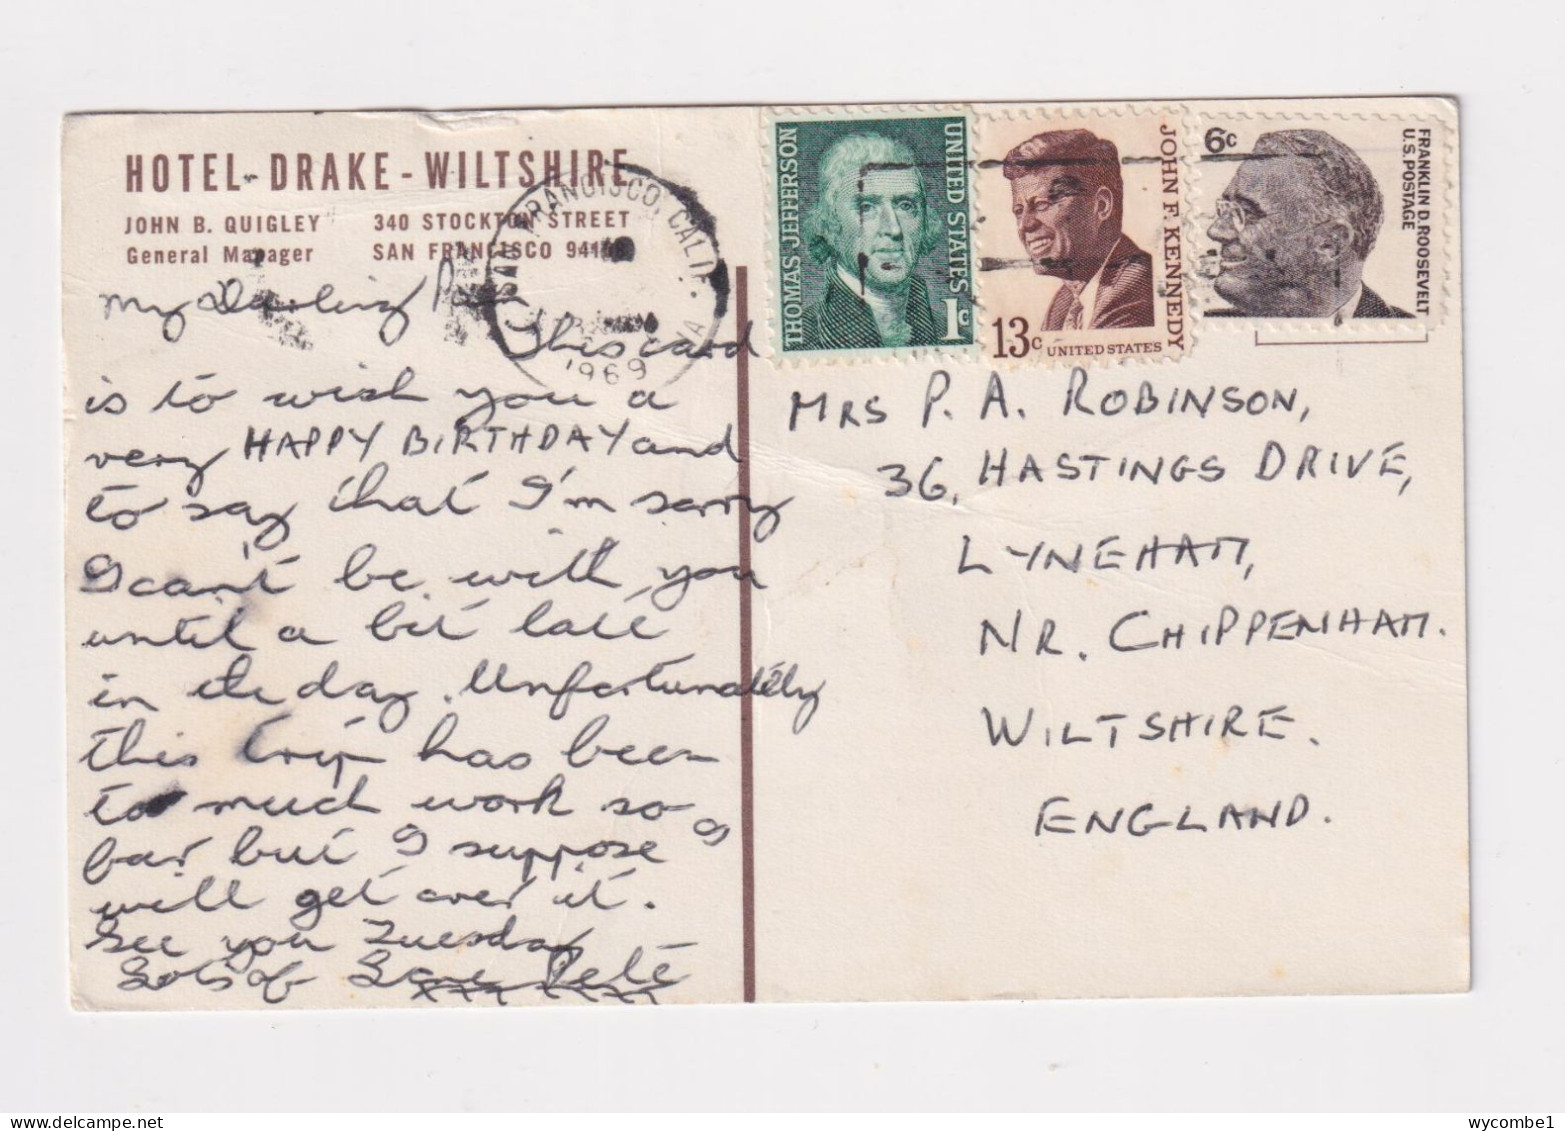 HOTEL-DRAKE-WILTSHIRE
JOHN B. QUIGLEY
General Manager
340 STOCKTON STREET
SAN FRANCISCO
SAN FRANCISCO, CALIF.
1969
THOMAS JEFFERSON
UNITED STATES
1c
JOHN F. KENNEDY
13c
UNITED STATES
6c
FRANKLIN D. ROOSEVELT
U.S. POSTAGE
My Darling
This card
is to wish you a
very HAPPY BIRTHDAY and
to say that I'm sorry
I can't be with you
until a bit late
in the day. Unfortunately
this trip has been
to much work so
far but I suppose I
will get over it.
See you Tuesday
Lots of Love Pete
xxx xxxx
MRS P. A. ROBINSON,
36, HASTINGS DRIVE,
LYNEHAM,
NR. CHIPPENHAM.
WILTSHIRE.
ENGLAND.
wycombe1